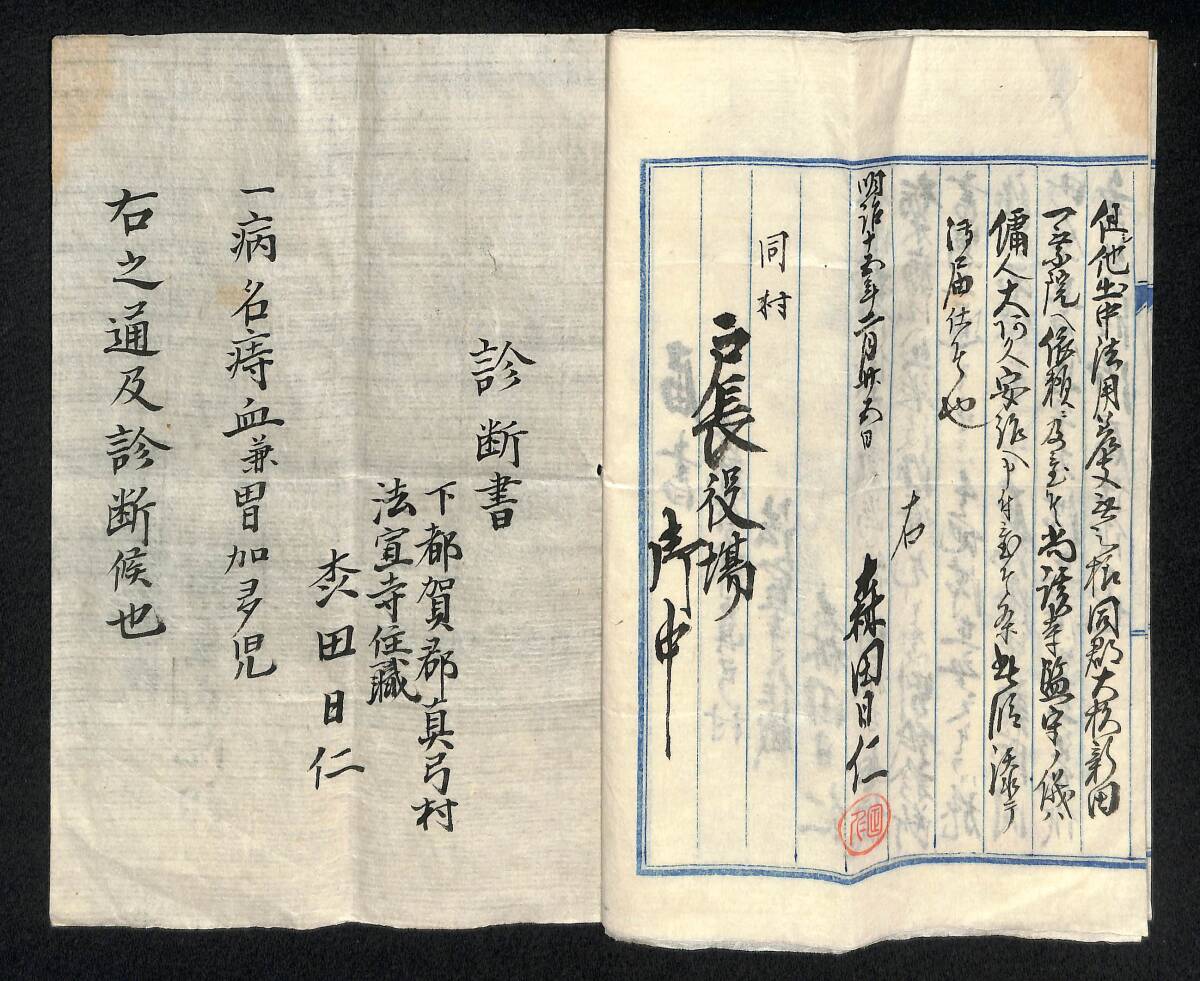 但他出中法用等差支無之様同郡大杉新田
一乗院へ依頼ニ及置候尚該寺監守ノ儀ハ
傭人大阿久安次郎へ申付置候条此段添テ
御届仕候也
右
明治十五年二月廿五日 森田日仁
同村
戸長役場
御中
診断書
下都賀郡真弓村
法宣寺住職
森田日仁
一病名痔血兼胃加多児
右之通及診断候也